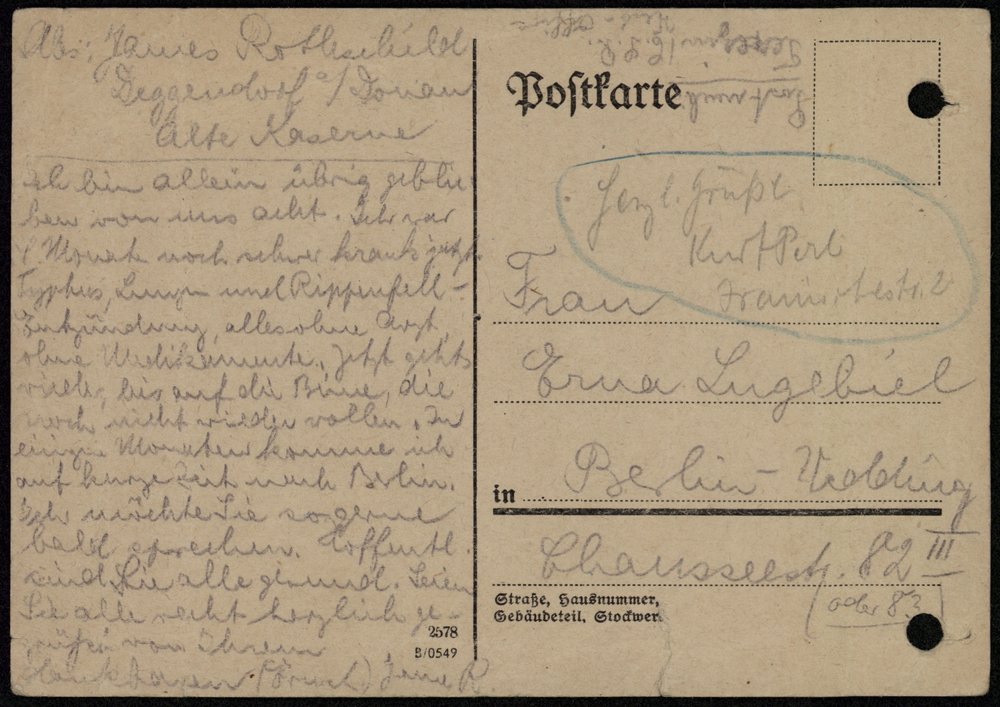 Abs: James Rothschild
Deggendorf a/Donau
Alte Kaserne
Ich bin allein übrig geblie-
ben von uns acht. Ich war
Monate noch schwer krank jetzt
Typhus, Lungen und Rippenfell-
Entzündung, alles ohne Arzt,
ohne Medikamente. Jetzt gehts
wieder, bis auf die Beine, die
noch nicht wieder wollen. In
einigen Monaten komme ich
auf kurze Zeit nach Berlin.
Ich möchte Sie so gerne
bald sprechen. Hoffentl.
sind Sie alle gesund. Seien
Sie alle recht herzlich ge-
grüßt von Ihrem
R.
2578
B/0549
Postkarte
Herzl. Grüße
Kurt Perl
Frau
Erna Lugebiel
in Berlin-Wedding
Chausseestr. 82 III
oder 83
Straße, Hausnummer,
Gebäudeteil, Stockwerk